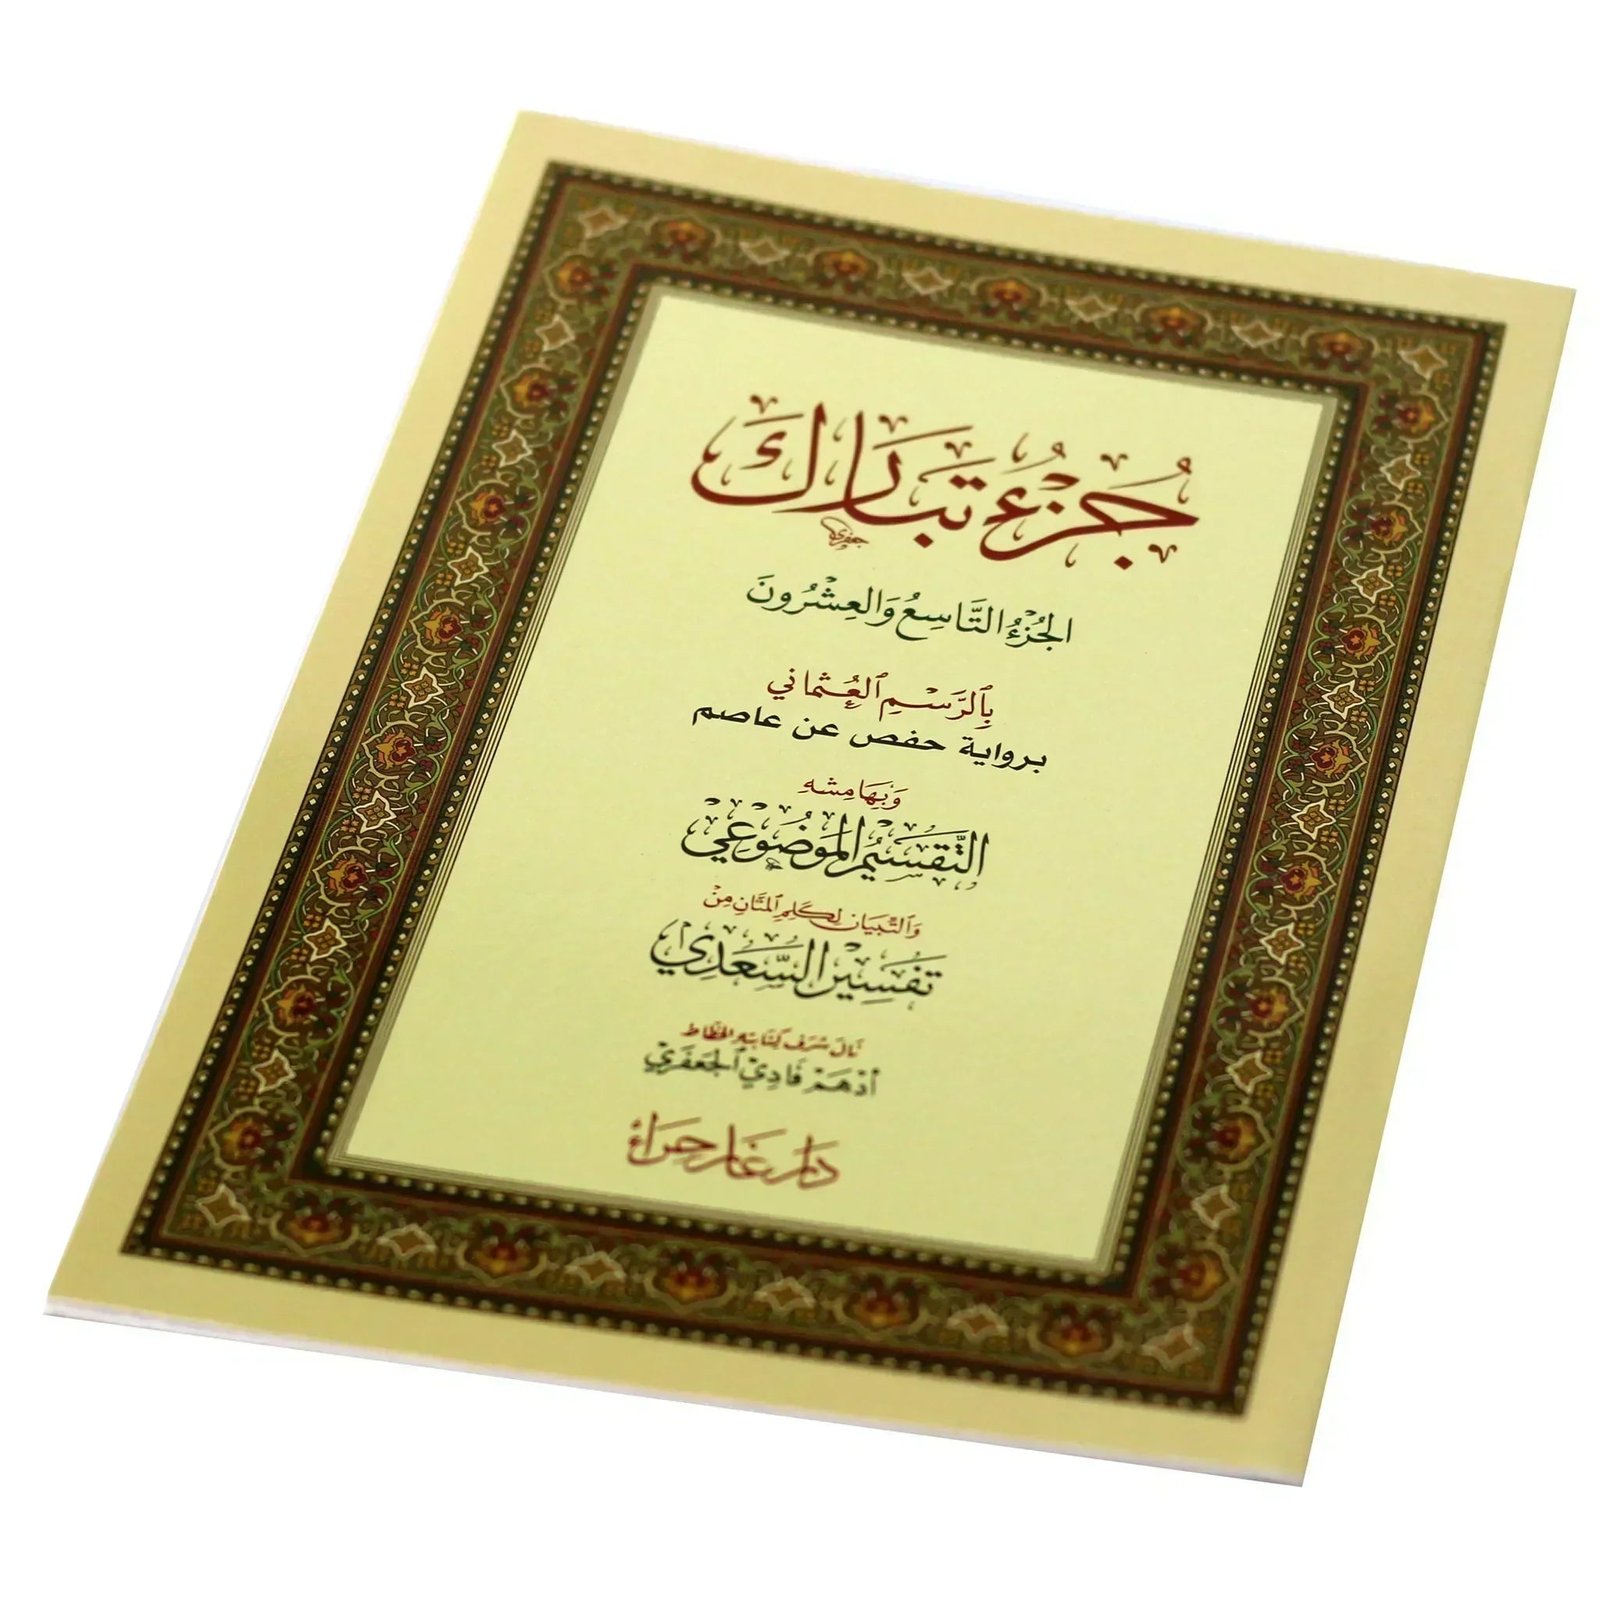 جُزْءُ تَبَارَكَ
جعفري
الجُزْءُ التَّاسِعُ وَالعِشْرُونَ
بِٱلرَّسْمِ ٱلعُثْمَانِي
برواية حفص عن عاصم
وَبِهَامِشِهِ
التَّقْسِيْمُ المَوْضُوْعِيْ
وَالتِّبْيَان لِكَلِمِ المَنَّانِ مِنْ
تَفْسِيْرِ السَّعْدِيْ
نَالَ شَرَفَ كِتَابَتِهِ الخَطَّاط
أدْهَمْ فَادِيْ الجَعْفَرِيْ
دَار غَار حِرَاء